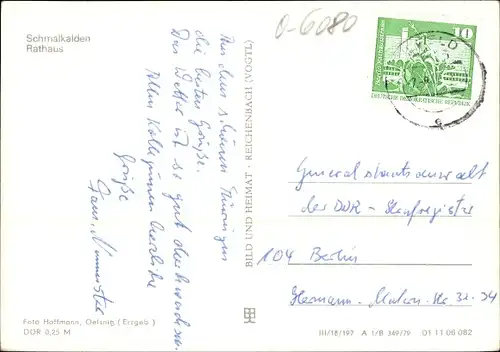 Schmalkalden
Rathaus
0-6080
10
DEUTSCHE DEMOKRATISCHE REPUBLIK
Aus dem schönen Thüringen
die besten Grüße.
Das Wetter ist so gut durchwachsen.
Allen Kolleginnen herzliche
Grüße
Fam.
BILD UND HEIMAT · REICHENBACH (VOGTL)
Generalstaatsanwalt
der DDR - Strafregister
104 Berlin
Hermann-Matern-Str. 33-34
Foto Hoffmann, Oelsnitz (Erzgeb.)
DDR 0,25 M
III/18/197 A 1/B 349/79 01 11 06 082